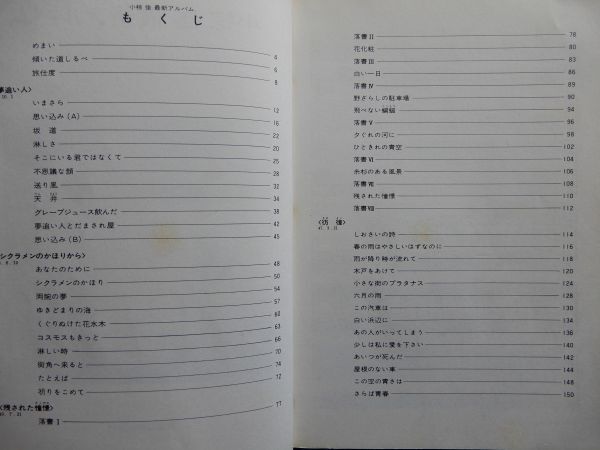 小椋 佳 最新アルバム
もくじ
めまい 4
傾いた道しるべ 6
旅仕度 8
夢追い人〉
いまさら 12
思い込み(A) 16
坂道 22
淋しさ 20
そこにいる君ではなくて 25
不思議な顔 28
送り風 32
天井 34
グレープジュース飲んだ 38
夢追い人とだまされ屋 42
思い込み(B) 45
シクラメンのかほりから〉
あなたのために 48
シクラメンのかほり 50
両腕の夢 54
ゆきどまりの海
くぐりぬけた花水木 60
コスモスもきっと 63
淋しい時 66
街角へ来ると 70
たとえば 74
祈りをこめて 72
〈残された憧憬〉
落書Ⅰ 77
落書Ⅱ 78
花化粧 80
落書Ⅲ 83
白い一日 86
落書Ⅳ 89
野ざらしの駐車場 90
飛べない蝙蝠 94
落書Ⅴ 96
夕ぐれの河に 98
ひとときれの青空 102
落書Ⅵ 104
糸杉のある風景 106
落書Ⅶ 108
残された憧憬 110
落書Ⅷ 112
〈彷徨〉
しおさいの詩 114
春の雨はやさしいはずなのに 116
雨が降り時が流れて 118
木戸をあけて 120
小さな街のプラタナス 124
六月の雨 128
この汽車は 130
白い浜辺に 134
あの人がいってしまう 136
少しは私に愛を下さい 140
あいつが死んだ 142
屋根のない車 144
この空の青さは 148
さらば青春 150